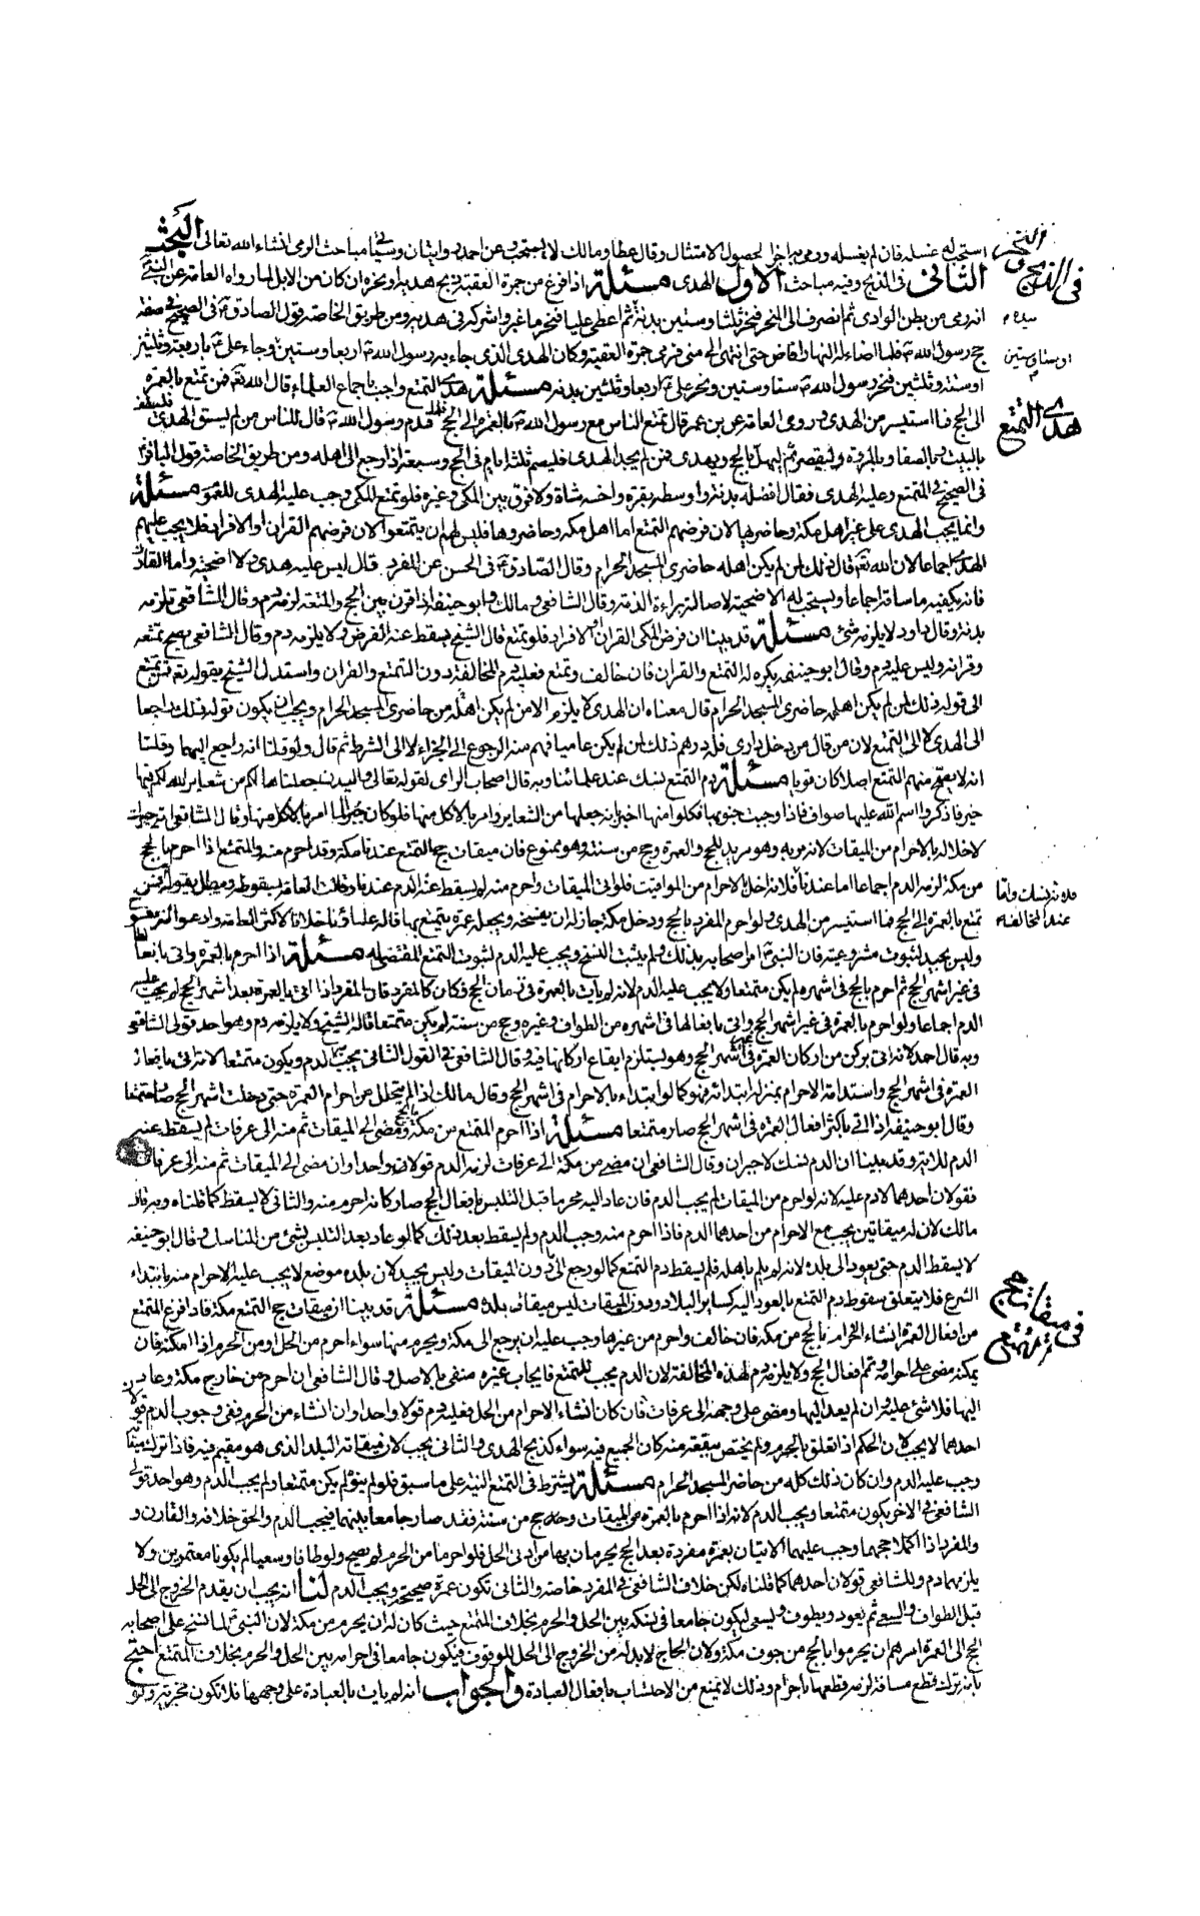 استحب له غسله فان لم يغسله ورمى به اجزأ لحصول الامتثال وقال عطا ومالك لا يستحب وعن احمد روايتان وسيأتي مباحث الرمى انشاء الله تعالى البحث
الثانى فى الذبح وفيه مباحث الاول الهدى مسئلة اذا فرغ من جمرة العقبة ذبح هديه او نحره ان كان من الابل لما رواه العامة عن النبى ص
انه رمى من بطن الوادى ثم انصرف الى المنحر فنحر ثلثا وستين بدنة ثم اعطى عليا فنحر ما غبر واشركه فى هديه ومن طريق الخاصة قول الصادق ع فى الصحيح فى صفة
حج رسول الله ص فلما اضاء له النهار افاض حتى انتهى الى منى فرمى جمرة العقبة وكان الهدى الذى جاء به رسول الله ص اربعا وستين وجاء على ع باربعة وثلثين
او ستة وثلثين فنحر رسول الله ص ستا وستين ونحر على ع اربعا وثلثين بدنه مسئلة هدى التمتع واجب باجماع العلماء قال الله تعالى فمن تمتع بالعمرة
الى الحج فما استيسر من الهدى وروى العامة عن بن عمر قال تمتع الناس مع رسول الله ص بالعمرة الى الحج فلما قدم رسول الله ص قال للناس من لم يسق الهدى فليطف
بالبيت وبالصفا وبالمروة وليقصر ثم ليهل بالحج ويهدى فمن لم يجد الهدى فليصم ثلثة ايام فى الحج وسبعة اذا رجع الى اهله ومن طريق الخاصة قول الباقر ع
فى الصحيح فى المتمتع وعليه الهدى فقال افضله بدنة واوسطه بقرة واخسه شاة ولا فرق بين المكى وغيره فلو تمتع المكى وجب عليه الهدى للعموم مسئلة
وانما يجب الهدى على غير اهل مكة وحاضريها لان فرضهم التمتع اما اهل مكة وحاضروها فليس لهم ان يتمتعوا لان فرضهم القران او الافراد فلا يجب عليهم
الهدى اجماعا لان الله تعالى قال ذلك لمن لم يكن اهله حاضرى المسجد الحرام وقال الصادق ع فى الحسن عن المفرد قال ليس عليه هدى ولا اضحية واما القارن
فانه يكفيه ما ساقه اجماعا ويستحب له الاضحية لاصالة براءة الذمة وقال الشافعى ومالك وابو حنيفة اذا قرن بين الحج والمتعة لزمه دم وقال الشافعى تلزمه
بدنة وقال داود لا يلزمه شئ مسئلة قد بينا ان فرض المكى القران او الافراد فلو تمتع قال الشيخ يسقط عنه الفرض ولا يلزمه دم وقال الشافعى يصح تمتعه
وقرانه وليس عليه دم وقال ابو حنيفة يكره له التمتع والقران فان خالف وتمتع فعليه دم للمخالفة دون التمتع والقران واستدل الشيخ بقوله تعالى فمن تمتع
الى قوله ذلك لمن لم يكن اهله حاضرى المسجد الحرام قال معناه ان الهدى لا يلزم الا من لم يكن اهله من حاضرى المسجد الحرام ويجب ان يكون قوله ذلك راجعا
الى الهدى لا الى التمتع لان من قال من دخل دارى فله درهم ذلك لمن لم يكن عاميا فهم منه الرجوع الى الجزاء لا الى الشرط ثم قال ولو قلنا انه راجع اليهما وقلنا
انه لا يصح منهم التمتع اصلا كان قويا مسئلة دم التمتع نسك عند علمائنا وبه قال اصحاب الراى لقوله تعالى والبدن جعلناها لكم من شعاير الله لكم فيها
خير فاذكروا اسم الله عليها صواف فاذا وجبت جنوبها فكلوا منها اخبر انه جعلها من الشعاير وامر بالاكل منها فلو كان جبرانا لما امر بالاكل منها وقال الشافعى انه جبران
لاخلاله بالاحرام من الميقات لانه مر به وهو مريد للحج والعمرة وحج من سنته وهو ممنوع فان ميقات حج التمتع عندنا مكة وقد احرم منه والمتمتع اذا احرم بالحج
من مكة لزمه الدم اجماعا اما عندنا فلانه اخل بالاحرام من المواقيت فلو اتى الميقات واحرم منه لم يسقط عنه الدم عندنا وقالت العامة بسقوطه ويبطل بقوله فمن
تمتع بالعمرة الى الحج فما استيسر من الهدى ولو احرم المفرد بالحج ودخل مكة جاز له ان يفسخه ويجعله عمرة يتمتع بها قاله علماؤنا خلافا لاكثر العامة وادعوا انه منسوخ
وليس بجيد لثبوت مشروعيته فان النبى ص امر اصحابه بذلك ولم يثبت النسخ ويجب عليه الدم لثبوت التمتع المقتضى له مسئلة اذا احرم بالعمرة واتى بافعالها
فى غير اشهر الحج ثم احرم بالحج فى اشهره لم يكن متمتعا ولا يجب عليه الدم لانه لم يات بالعمرة فى زمان الحج فكان كالمفرد فان المفرد اذا اتى بالعمرة بعد اشهر الحج لم يجب عليه
الدم اجماعا ولو احرم بالعمرة فى غير اشهر الحج واتى بافعالها فى اشهره من الطواف وغيره وحج من سنته لم يكن متمتعا قاله الشيخ ولا يلزمه دم وهو احد قولى الشافعى
وبه قال احمد لانه اتى بركن من اركان العمرة فى غير اشهر الحج وهو يستلزم ايقاع اركانها فيه وقال الشافعى فى القول الثانى يجب الدم ويكون متمتعا لانه اتى بافعال
العمرة فى اشهر الحج واستدامة الاحرام بمنزلة ابتدائه فهو كما لو ابتداء بالاحرام فى اشهر الحج وقال مالك اذا لم يتحلل من احرام العمرة حتى دخلت اشهر الحج صار متمتعا
وقال ابو حنيفة اذا اتى باكثر افعال العمرة فى اشهر الحج صار متمتعا مسئلة اذا احرم المتمتع من مكة بالحج ومضى الى الميقات ثم منه الى عرفات لم يسقط عنه
الدم للاية وقد بينا ان الدم نسك لا جبران وقال الشافعى ان مضى من مكة الى عرفات لزمه الدم قولا واحدا وان مضى الى الميقات ثم منه الى عرفات
فقولان احدهما لا دم عليه لانه لو احرم من الميقات لم يجب الدم فان عاد اليه محرما قبل التلبس بافعال الحج صار كانه احرم منه والثانى لا يسقط كما قلناه وبه قال
مالك لان له ميقاتين يجب مع الاحرام من احدهما الدم فاذا احرم منه وجب الدم ولم يسقط بعد ذلك كما لو عاد بعد التلبس بشئ من المناسك وقال ابو حنيفة
لا يسقط الدم حتى يعود الى بلده لانه لم يلم باهله فلم يسقط دم التمتع كما لو رجع الى دون الميقات وليس بجيد لان بلده موضع لا يجب عليه الاحرام منه بابتداء
الشرع فلا يتعلق سقوط دم التمتع بالعود اليه كساير البلاد ودون الميقات ليس ميقات بلده مسئلة قد بينا ان ميقات حج التمتع مكة فاذا فرغ المتمتع
من افعال العمرة انشاء احرامه بالحج من مكة فان خالف واحرم من غيرها وجب عليه ان يرجع الى مكة ويحرم منها سواء احرم من الحل او من الحرم اذا امكنه فان لم
يمكنه مضى على احرامه وتمم افعال الحج ولا يلزمه دم لهذه المخالفة لان الدم يجب للتمتع فايجاب غيره منفى بالاصل وقال الشافعى ان احرم من خارج مكة وعاد
اليها فلا شئ عليه وان لم يعد اليها ومضى على وجهه الى عرفات فان كان انشاء الاحرام من الحل فعليه دم قولا واحدا وان انشاء من الحرم ففى وجوب الدم قولان
احدهما لا يجب لان الحكم اذا تعلق بالحرم ولم يختص ببقعة منه كان الجميع فيه سواء كذبح الهدى والثانى يجب لان ميقاته البلد الذى هو مقيم فيه فاذا ترك ميقاته
وجب عليه الدم وان كان ذلك كله من حاضر المسجد الحرام مسئلة يشترط فى التمتع النية على ما سبق فلو لم ينوه لم يكن متمتعا ولم يجب الدم وهو احد قولى
الشافعى وفى الاخر يكون متمتعا ويجب الدم لانه اذا احرم بالعمرة من الميقات وحج من سنته فقد صار جامعا بينهما فيجب الدم والحق خلافه والقارن و
والمفرد اذا اكملا حجهما وجب عليهما الاتيان بعمرة مفردة بعد الحج يحرمان بها من ادنى الحل فلو احرما من الحرم لم يصح ولو طافا وسعيا لم يكونا معتمرين ولا
يلزمهما دم وللشافعى قولان احدهما كما قلناه لكن خلاف الشافعى فى المفرد خاصة والثانى تكون عمرة صحيحة ويجب الدم لنا انه يجب ان يقدم الخروج الى الحل
قبل الطواف والسعى ثم يعود ويطوف ويسعى ليكون جامعا فى نسكه بين الحل والحرم بخلاف المتمتع حيث كان له ان يحرم من مكة لان النبى ص لما فسخ على اصحابه
الحج الى العمرة امرهم ان يحرموا بالحج من جوف مكة ولان الحاج لا بد له من الخروج الى الحل للوقوف فيكون جامعا فى احرامه بين الحل والحرم بخلاف المتمتع احتج
بانه ترك قطع مسافة لزمه قطعها باحرام وذلك لا يمنع من الاحتساب بافعال العبادة والجواب انه لم يات بالعبادة على وجهها فلا تكون مجزية ولو
فى الذبح
بيده
او ستا وستين
هدى التمتع
عند المخالف
فى ميقات حج